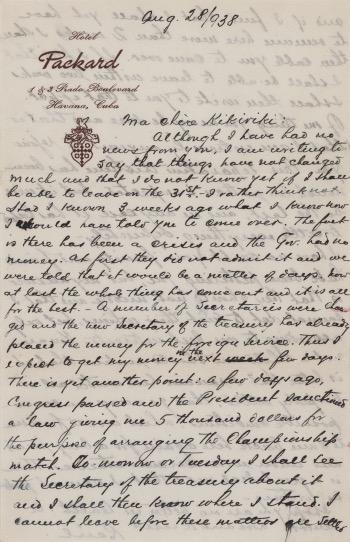 Aug. 28/938
Hotel
Packard
1 & 3 Prado Boulevard
Havana, Cuba
Ma chère Kikiriki:
Although I have had no
news from you, I am writing to
say that things have not changed
much and that I do not know yet if I shall
be able to leave on the 31st. I rather think not.
Had I known 3 weeks ago what I know now
I would have told you to come over. The fact
is there has been a crisis and the Gov. had no
money. At first they did not admit it and we
were told that it would be a matter of days, now
at last the whole thing has come out and it is all
for the best. - A number of Secretaries were chan
ged and the new Secretary of the treasury has already
placed the money for the foreign Service. Thus I
expect to get my money in the next few days.
There is yet another point: a few days ago,
Congress passed and the President sanctioned
a law giving me 5 thousand dollars for
the purpose of arranging the Championship
match. To-morrow or Tuesday I shall see
the Secretary of the treasury about it
and I shall then know where I stand. I
cannot leave before these matters are settled